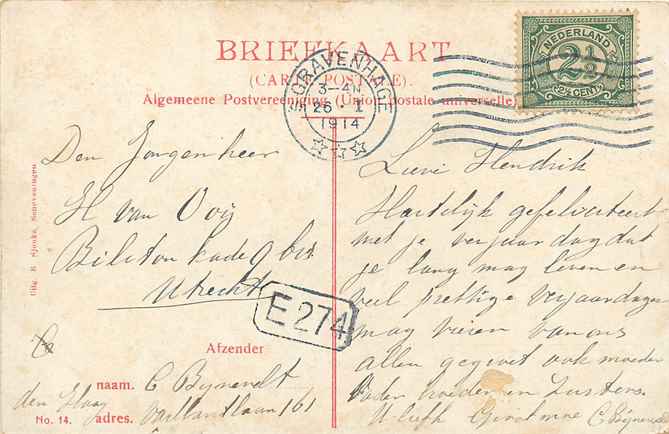 BRIEFKAART
(CARTE POSTALE).
Algemeene Postvereeniging (Union postale universelle)
NEDERLAND
2½
2½ CENT
'S GRAVENHAGE
3-4N
26 I
1914
Den Jongenheer
H van Ooij
Biltonkade 9 bis
Utrecht
E 274
Lieve Hendrik
Hartelijk gefeliciteert
met je verjaardag dat
je lang mag leven en
veel prettige verjaardagen
mag vieren van ons
allen gegroet ook moeder
vader broeder en zusters
Uitg. B. Sjouke, Scheveningen.
Afzender
naam. C Bijnevelt
den Haag
No. 14. adres. Vaillantlaan 161